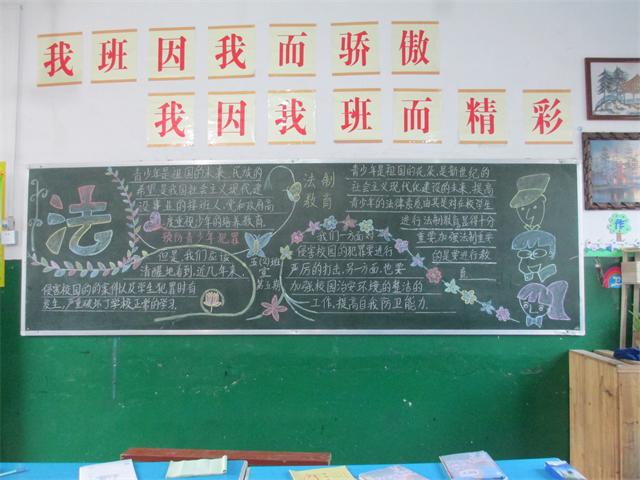 我班因我而骄傲
我因我班而精彩
法
青少年是祖国的未来,民族的
希望,是我国社会主义现代建
设事业的接班人,党和政府高
度重视少年的培养教育.
预防青少年犯罪
但是我们应该
清醒地看到,近几年来,
侵害校园的的案件以及学生犯罪时有
发生,严重破坏了学校正常的学习.
法制
教育
五(4)班
宣
第五期
青少年是祖国的花朵,是新世纪的
社会主义现代化建设的未来,提高
青少年的法律素质由其是对在校学生
进行法制教育显得十分
重要加强法制重要
的是要进行教
育
我们一方面对
侵害校园的犯罪要进行
严厉的打击,另一方面,也要
加强校园治安环境的整洁的
工作,提高自我防卫能力.